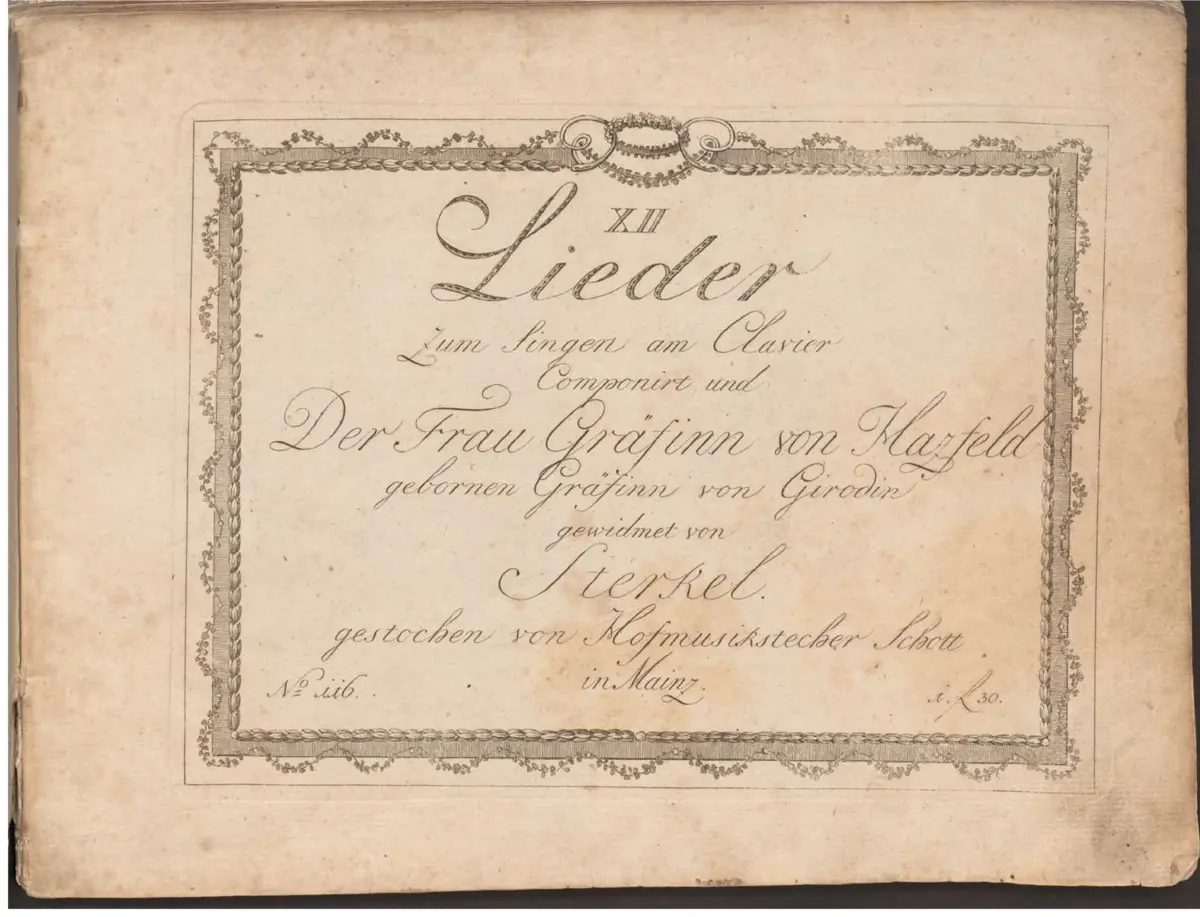 XII
Lieder
zum Singen am Clavier
Componirt und
Der Frau Gräfinn von Hazfeld
gebornen Gräfinn von Girodin
gewidmet von
Sterkel.
gestochen von Hofmusikstecher Schott
in Mainz.
No 116.
1. f 30.